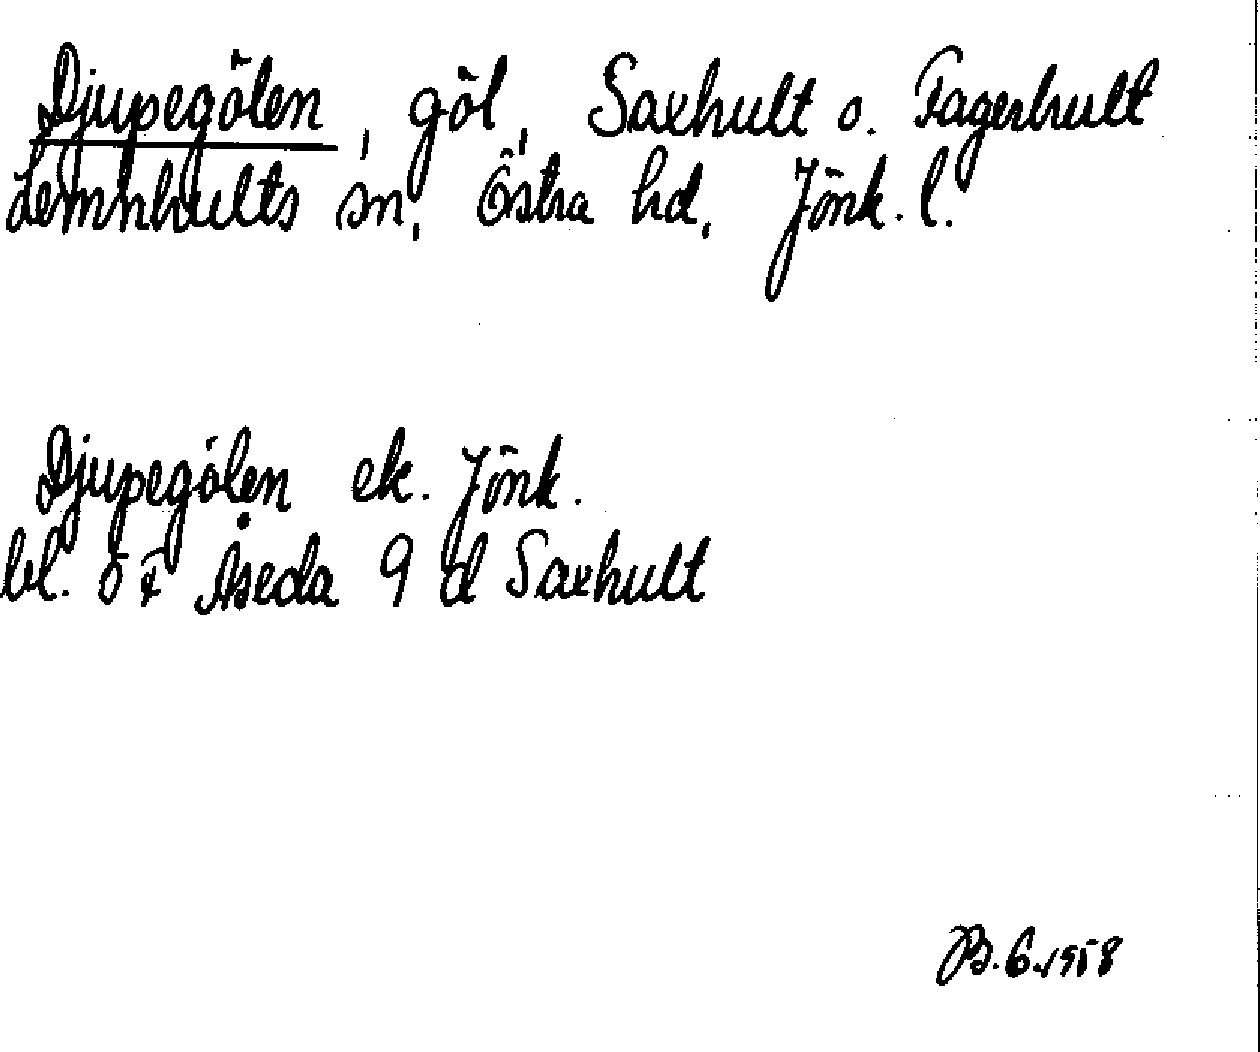 Djupegölen, göl, Saxhult o. Fagerhult
Lemnhults sn, Östra hd, Jönk. l.
Djupegölen ek. Jönk.
bl. Åseda 9 d Saxhult
B. G. 1958